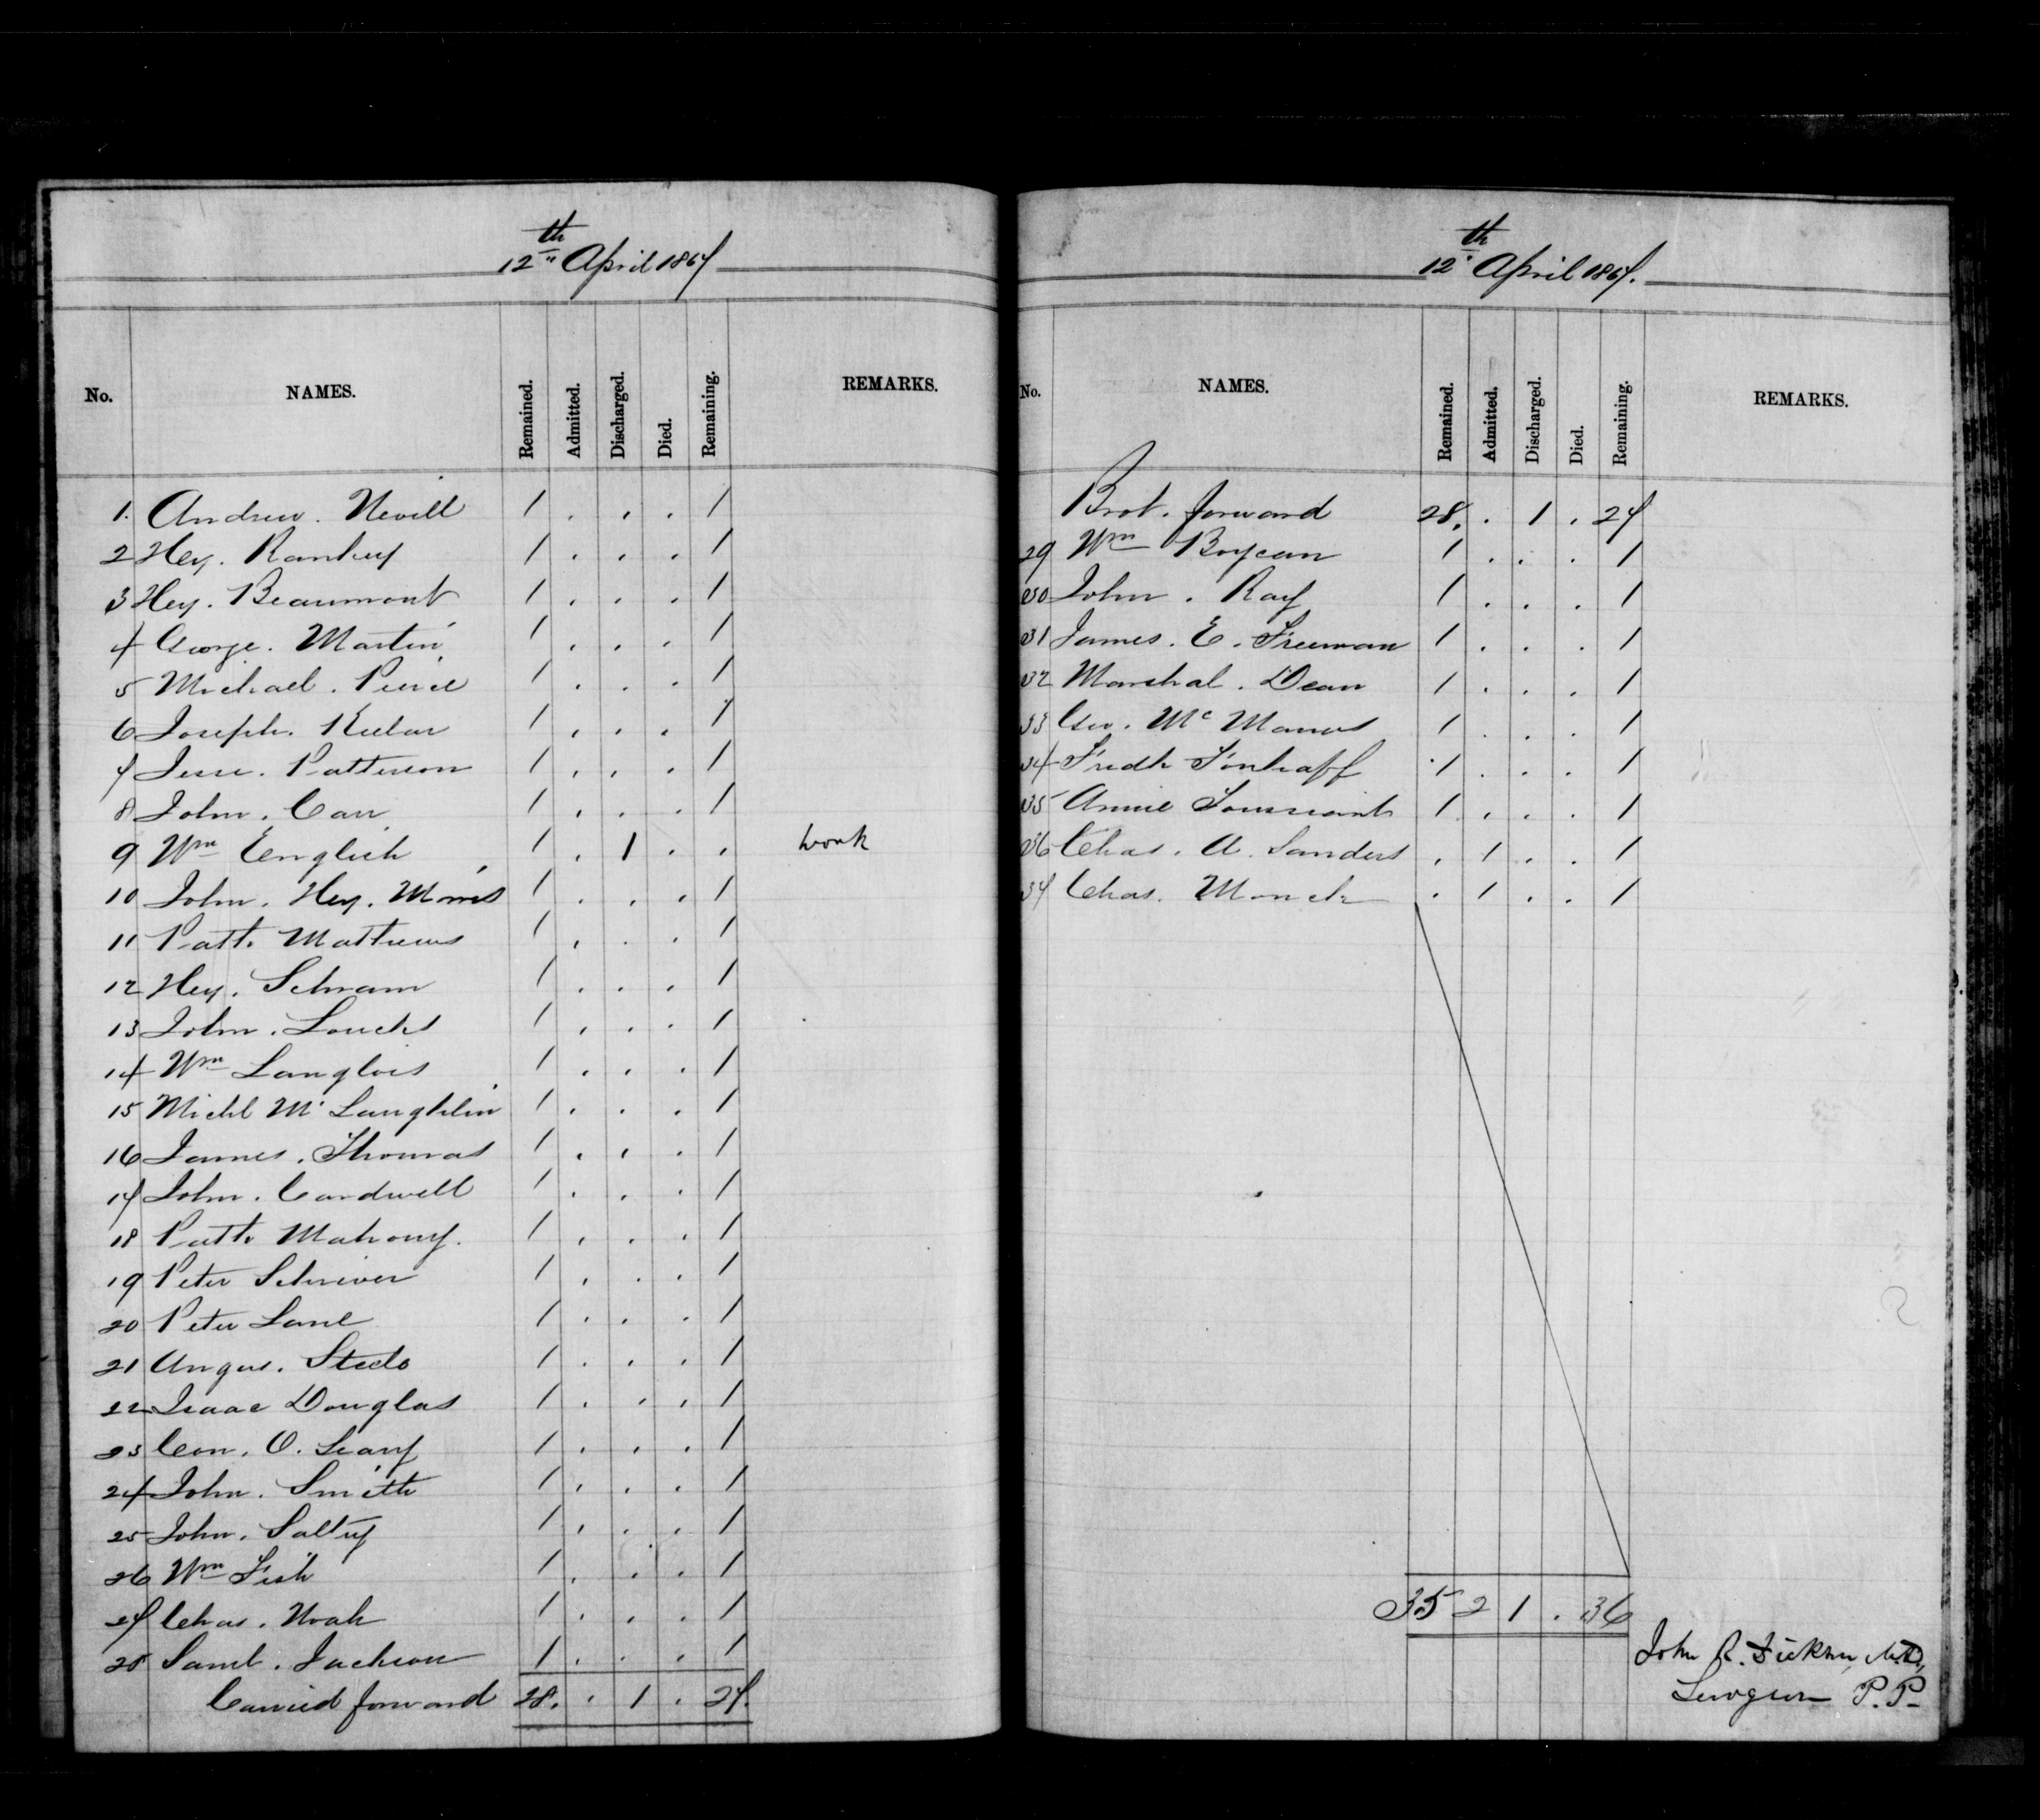 12th April 1867
No. NAMES. Remained. Admitted. Discharged. Died. Remaining. REMARKS.
1. Andrew. Nevill 1 . . . 1
2 Hey. Rankey 1 . . . 1
3 Hey. Beaumont 1 . . . 1
4 George. Martin 1 . . . 1
5 Michael. Peirce 1 . . . 1
6 Joseph. Keelar 1 . . . 1
7 Jesse. Patterson 1 . . . 1
8 John. Carr 1 . . . 1
9 Wm English 1 . 1 . . work
10 John. Hey. Morris 1 . . . 1
11 Patk. Mathews 1 . . . 1
12 Hey. Schram 1 . . . 1
13 John. Loucks 1 . . . 1
14 Wm Langlois 1 . . . 1
15 Michl McLaughlin 1 . . . 1
16 James. Thomas 1 . . . 1
17 John. Cardwell 1 . . . 1
18 Patk Mahony. 1 . . . 1
19 Peter Schriver 1 . . . 1
20 Peter Lane 1 . . . 1
21 Angus. Steele 1 . . . 1
22 Isaac Douglas 1 . . . 1
23 Con. O. Leary 1 . . . 1
24 John. Smith 1 . . . 1
25 John. Saltry 1 . . . 1
26 Wm Fish 1 . . . 1
27 Chas. Noah 1 . . . 1
28 Saml. Jackson 1 . . . 1
Carried forward 28. . 1 . 27.
12th April 1867.
No. NAMES. Remained. Admitted. Discharged. Died. Remaining. REMARKS.
Brot. forward 28. . 1 . 27
29 Wm Boycan 1 . . . 1
30 John. Ray 1 . . . 1
31 James. E. Freeman 1 . . . 1
32 Marshal. Dean 1 . . . 1
33 Geo. McManus 1 . . . 1
34 Fredk 1 . . . 1
35 Annie Toussaint 1 . . . 1
36 Chas. A. Sanders . 1 . . 1
37 Chas. Monck . 1 . . 1
35 2 1 . 36
John R. Dickson, M.D.,
Surgeon P.P.